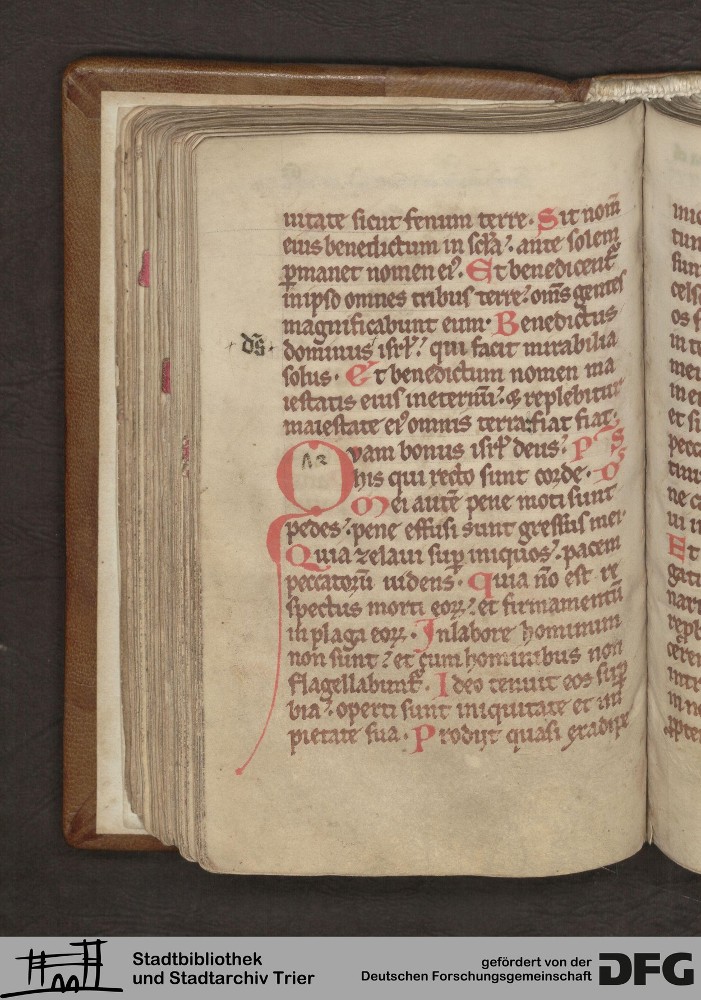 uitate sicut fenum terre. Sit nom̄
eius benedictum in scl̄a. ante solem
ꝑmanet nomen eiꝰ. Et benedicent᷑
in ipso omnes tribus terre. om̄s gentes
magnificabunt eum. Benedictus
dominus isrl̄. qui facit mirabilia
solus. Et benedictum nomen ma
iestatis eius ineternū. ⁊ replebitur
maiestate eiꝰ omnis terra: fiat fiat.
Quam bonus isrl̄ deus.
his qui recto sunt corde.
Mei autē pene moti sunt
pedes. pene effusi sunt gressus mei.
Quia zelaui suꝑ iniquos. pacem
peccatorū uidens. Quia nō est re
spectus morti eoꝝ. et firmamentū
in plaga eoꝝ. Inlabore hominum
non sunt. et cum hominibus non
flagellabunt᷑. Ideo tenuit eos suꝑ
bia. operti sunt iniquitate et im
pietate sua. Prodijt quasi
ds̄
Stadtbibliothek
und Stadtarchiv Trier
gefördert von der
Deutschen Forschungsgemeinschaft
DFG